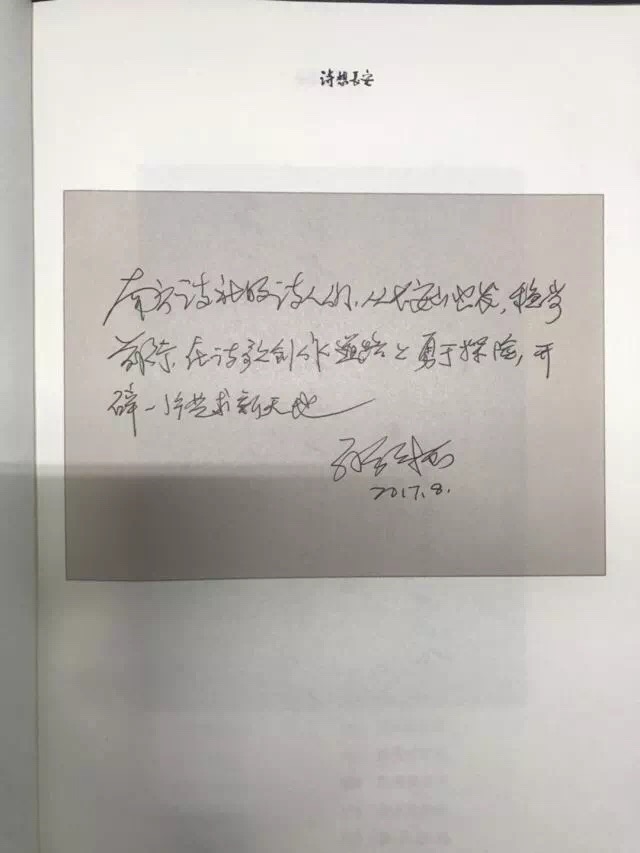 诗想长安
南方诗社的诗人们,从长安山出发,稳步
前行,在诗歌创作道路上勇于探险,开
辟一片艺术新天地
孙绍振
2017.8.